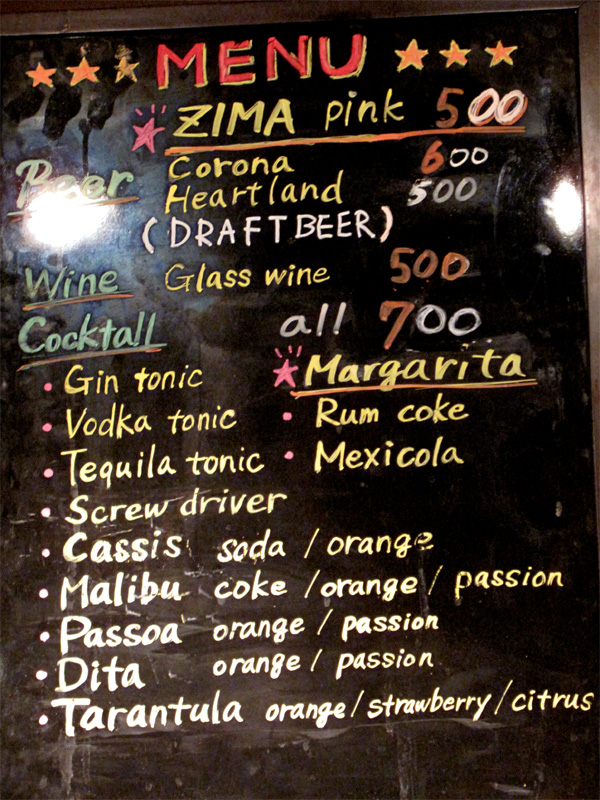 MENU
ZIMA pink 500
Beer Corona 600
Heartland 500
(DRAFT BEER)
Wine Glass wine 500
Cocktall all 700
Gin tonic
Margarita
Vodka tonic
Rum coke
Tequila tonic
Mexicola
Screw driver
Cassis soda / orange
Malibu coke / orange / passion
Passoa orange / passion
Dita orange / passion
Tarantula orange / strawberry / citrus